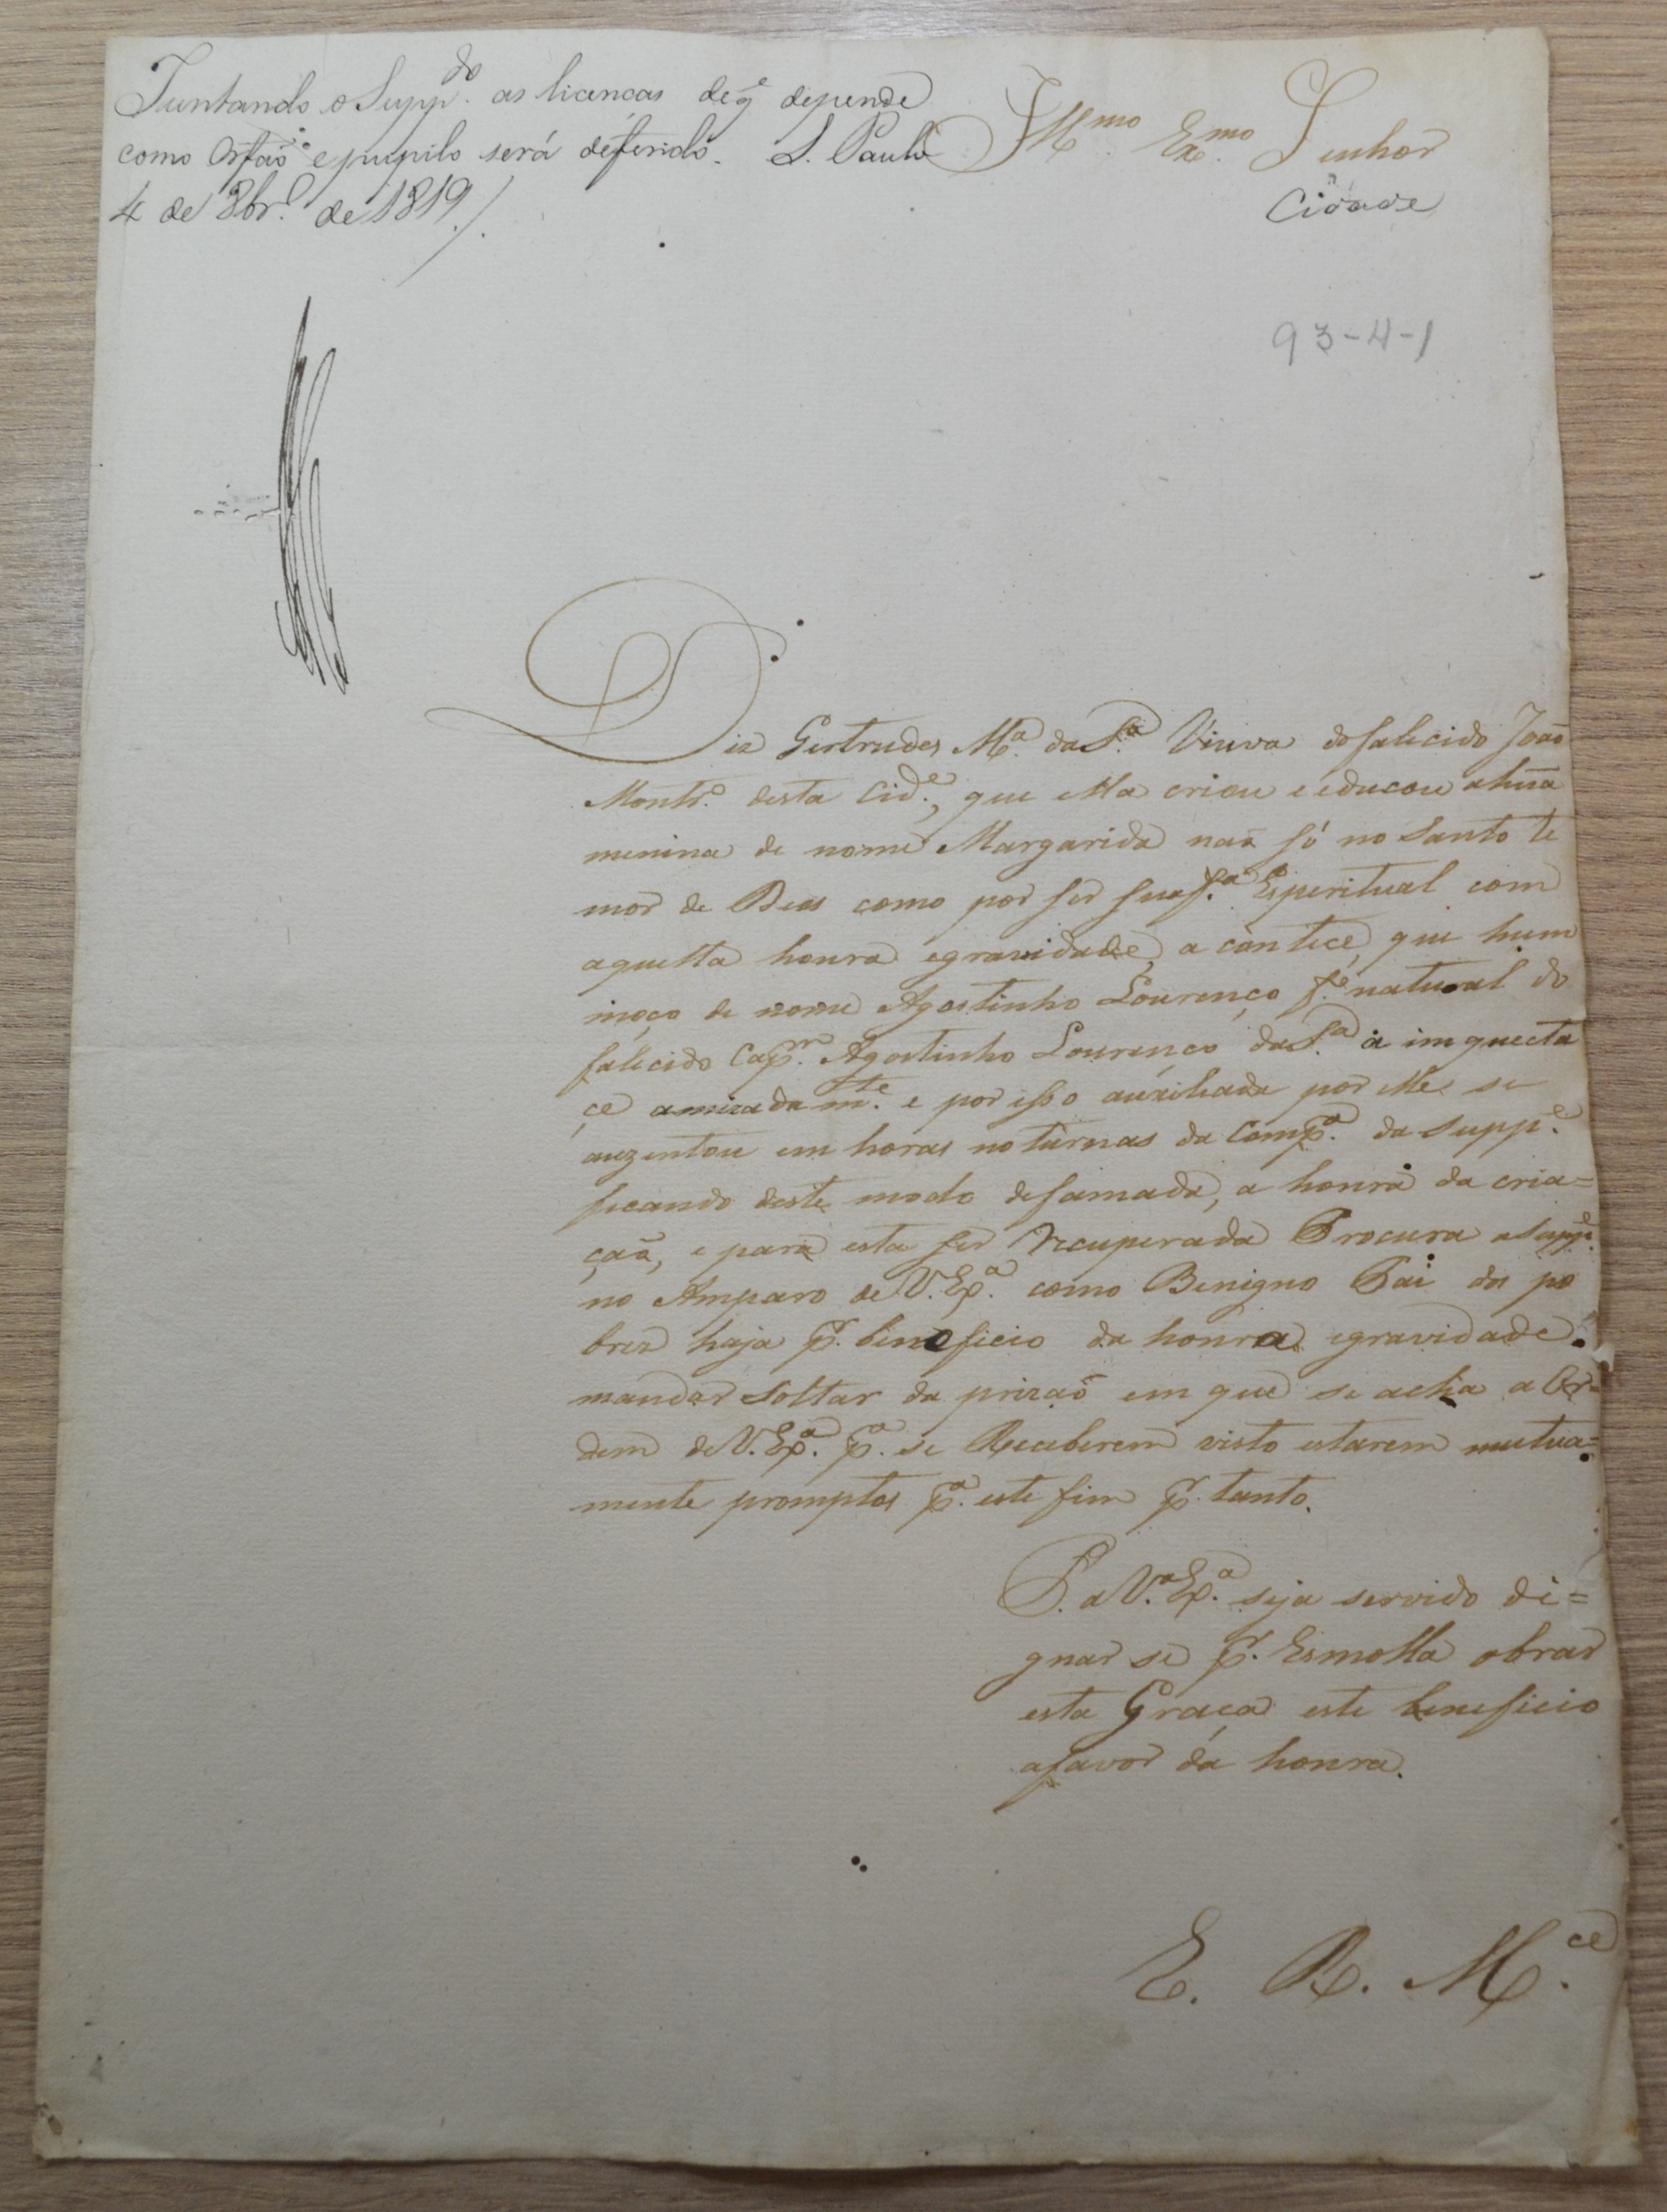 Juntando o Supp.do as licencas de q̃ depende
como Orfaõ e pupilo será deferido. S. Paulo
4 de 8br.o de 1819
Ill.mo Ex.mo Senhor
Cidade
93-4-1
Diz Gertrudes M.a da S.a Viuva do falicido Joaõ
Montr.o desta Cid.e, que ella criou e educou a huã
menina de nome Margarida naõ só no Santo te
mor de Deos como por ser sua f.a Esperitual com
aquella honra e gravidade, a contece, que hum
moço de nome Agostinho Lourenço f.o natural do
falicido Cap.m Agostinho Lourenço da S.a a imquieta
ce amizadam.te e por isso auxiliada por elle se
auzentou em horas noturnas da Comp.a da Supp.e
ficando deste modo defamada, a honra da cria=
çaõ, e para esta ser Recuperada Procura a Supp.e
no Amparo de V. Ex.a como Benigno Pai dos po
brez haja p.r beneficio da honra e gravidade
mandar soltar da prizaõ em que se acha a Or=
dem de V. Ex.a p.a se Receberem visto estarem mutua=
mente promptos p.a este fim p.r tanto.
P. a V.a Ex.a seja servido di=
gnar se p.r Esmolla obrar
esta Graça este beneficio
afavor da honra.
E. R. M.ce